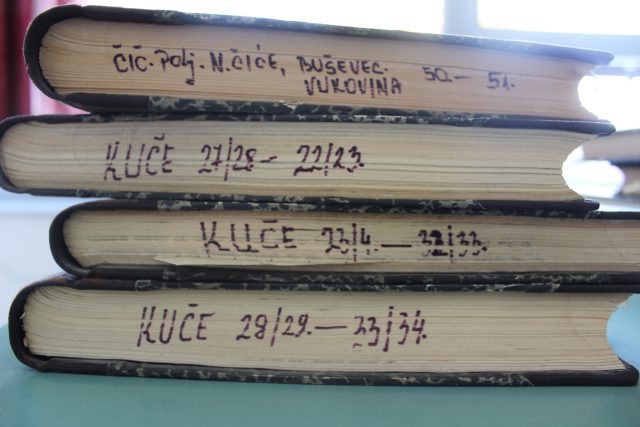 ČIČ. Polj. N. ČIČE, BUŠEVEC.
VUKOVINA 50.— 51.
KUČE 27/28 — 22/23.
KUČE 23/4. — 32/33.
KUČE 28/29. — 33/34.